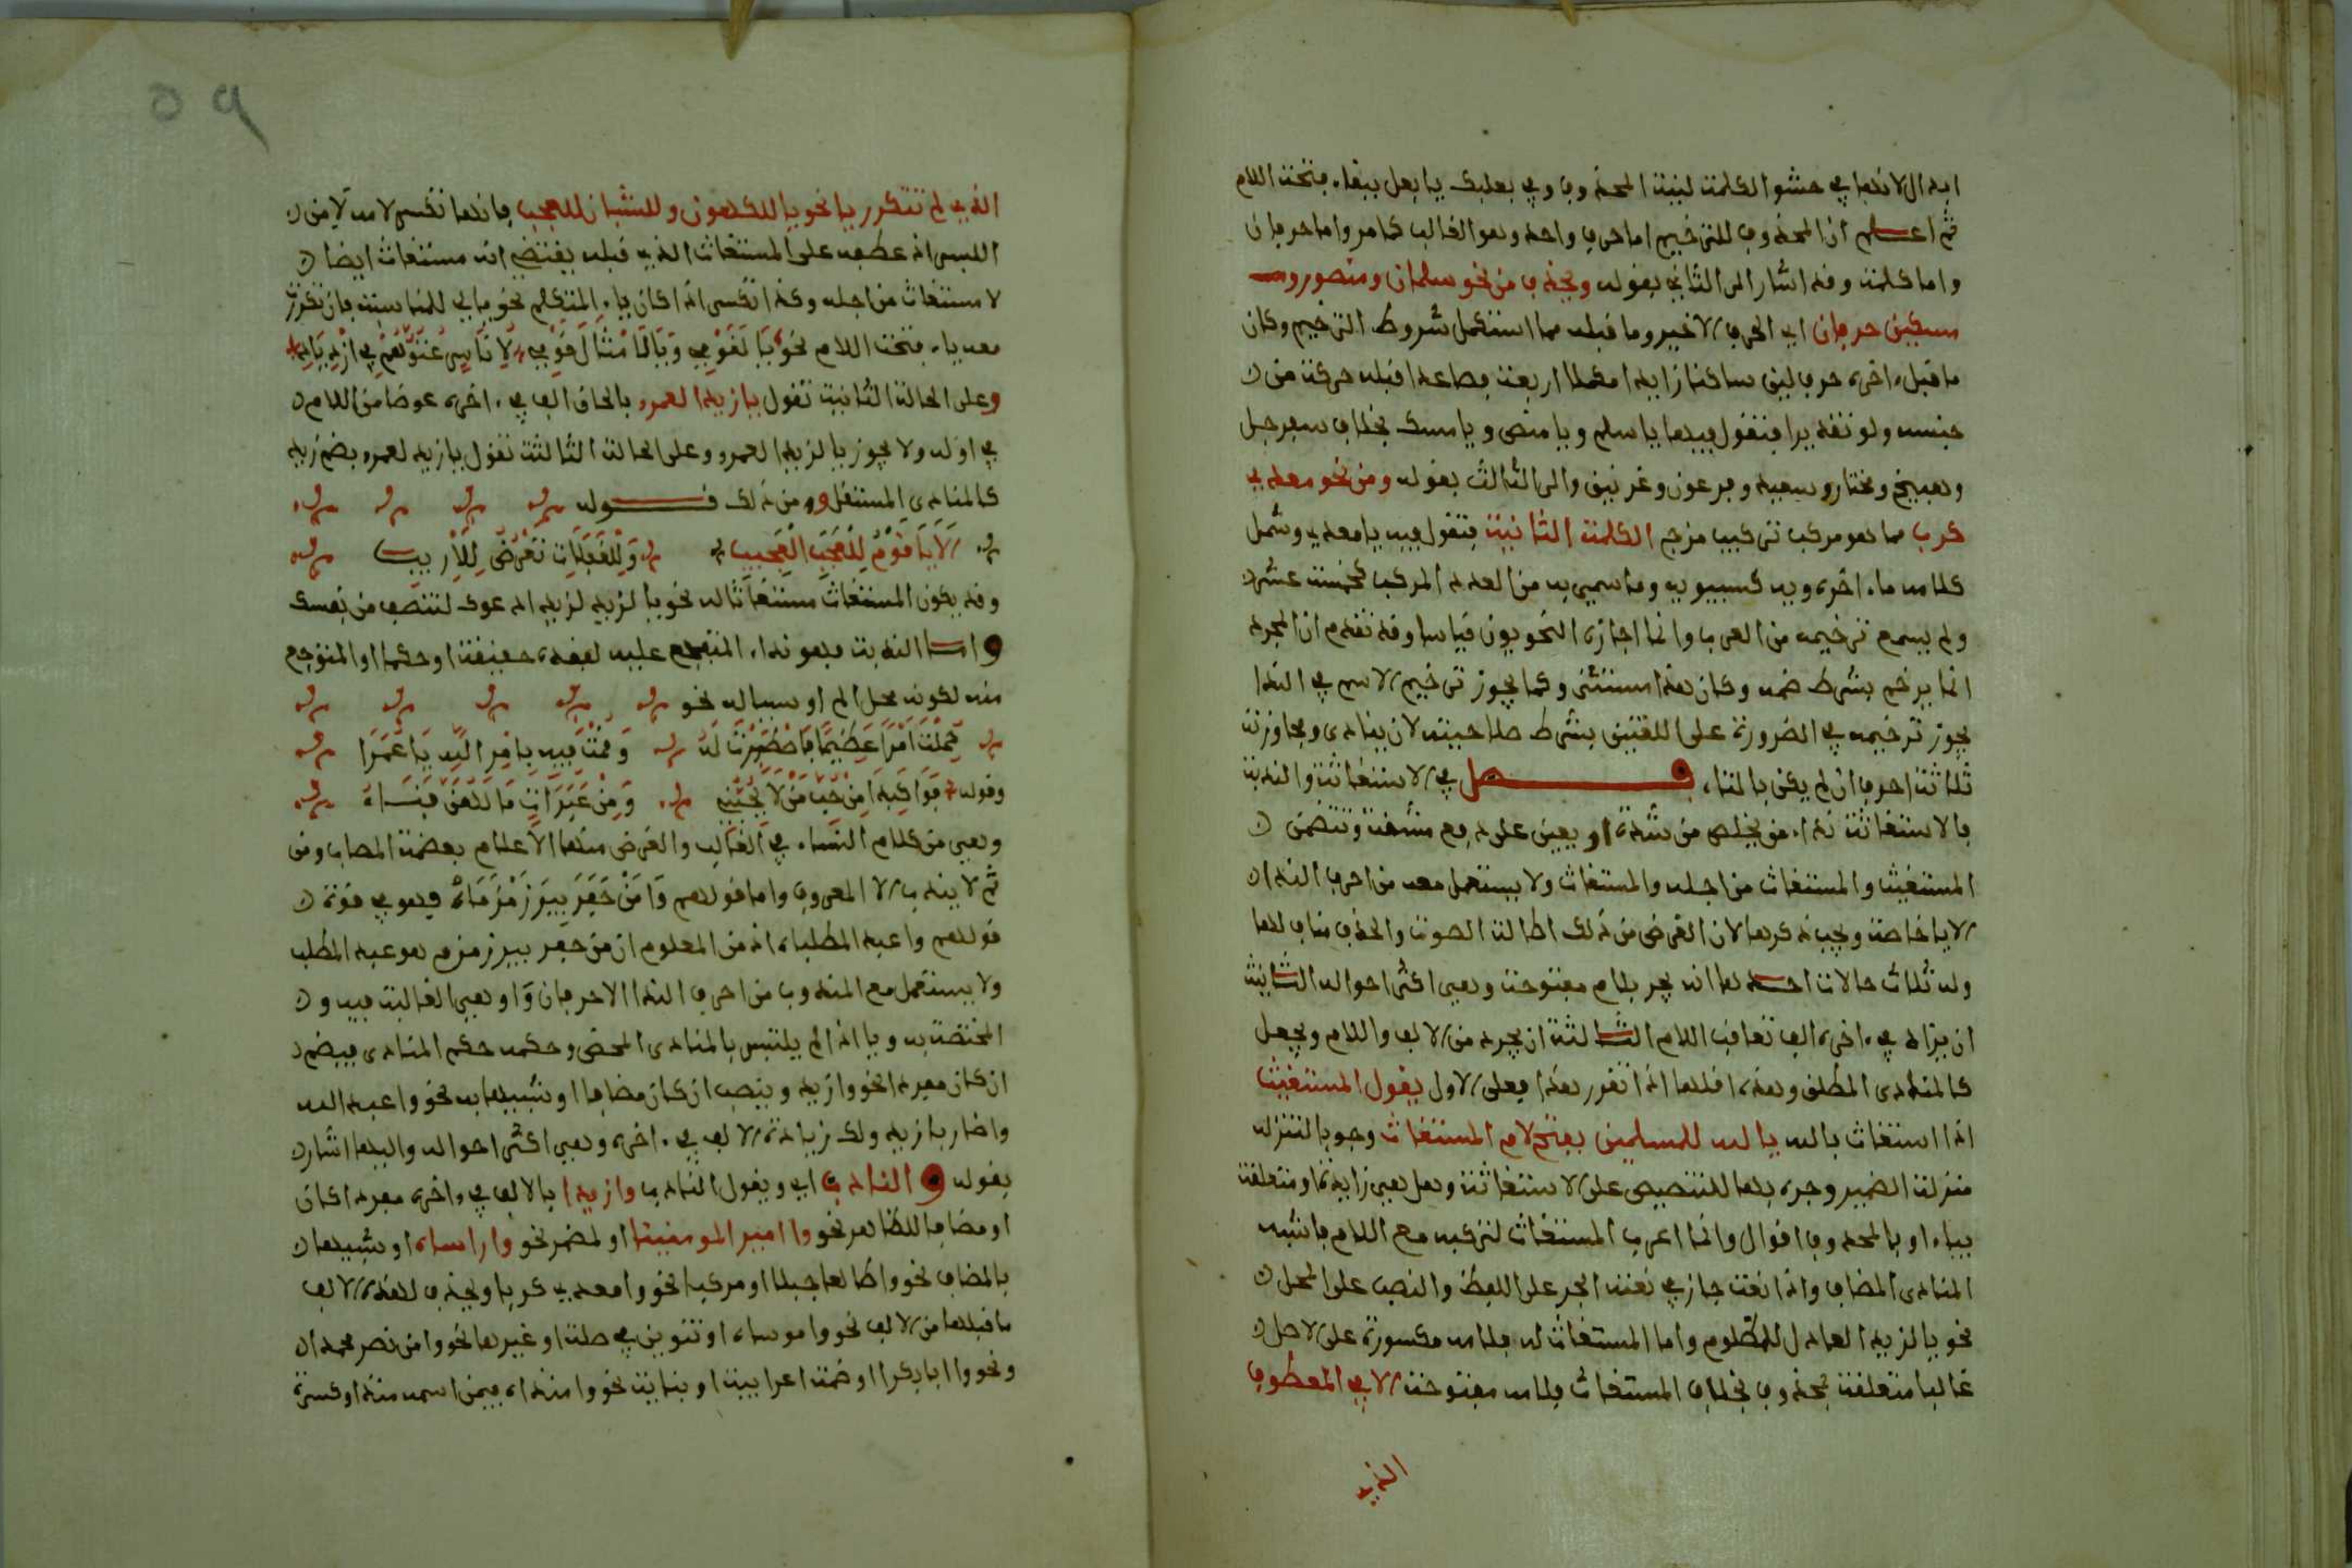 ابدال لانها في حشو الكلمة لنية المحذوف وفي بعلبك يا بعل ببقاء فتحة اللام
ثم اعلم ان المحذوف للترخيم اما حرف واحد وهو الغالب كما مر واما حرفان
واما كلمة وقد اشار الى الثاني بقوله ويحذف من نحو سلمان ومنصور و
مسكين حرفان اي الحرف الاخير وما قبله مما استكمل شروط الترخيم وكان
ما قبل اخره حرف لين ساكنا زايدا مكملا اربعة فصاعدا قبله حركة من
جنسه ولو تقديرا فتقول فيها يا سلم ويا منص ويا مسك بخلاف سفرجل
وهبيخ ومختار وسعيد وفرعون وغرنيق والى الثالث بقوله ومن نحو معدي
كرب مما هو مركب تركيب مزج الكلمة الثانية فتقول فيه يا معدي وشمل
كلامه ما اخره ويه كسيبويه وما سمي به من العدد المركب كخمسة عشر
ولم يسمع ترخيمه من العرب وانما اجازه النحويون قياسا وقد تقدم ان المجرد
انما يرخم بشرط ضمه وكان هذا مستثنى وكما يجوز ترخيم الاسم في الندا
يجوز ترخيمه في الضرورة على اللغتين بشرط صلاحيته لان ينادى ومجاوزة
ثلاثة احرف ان لم يكن بالتاء فصل في الاستغاثة والندبة
فالاستغاثة نداء من يخلص من شدة او يعين على دفع مشقة وتتضمن
المستغيث والمستغاث من اجله والمستغاث ولا يستعمل معه من احرف الندا
الا يا خاصة ويجب ذكرها لان الغرض من ذلك اطالة الصوت والحذف مناف لها
وله ثلاث حالات احدها انه يجر بلام مفتوحة وهي اكثر احواله الثانية
ان يزاد في اخره الف تعاقب اللام الثالثة ان يجرد من الالف واللام ويجعل
كالمنادى المطلق وهذه اقلها اذا تقرر هذا فعلى الاول يقول المستغيث
اذا استغاث بالله يا لله للمسلمين بفتح لام المستغاث وجوبا لتنزله
منزلة الضمير وجره بها للتنصيص على الاستغاثة وهل هي زايدة او متعلقة
بياء او بالمحذوف اقوال وانما اعرب المستغاث لتركبه مع اللام فاشبه
المنادى المضاف واذا نعت جاز في نعته الجر على اللفظ والنصب على المحل
نحو يا لزيد العادل للمظلوم واما المستغاث له فلامه مكسورة على الاصل
غالبا متعلقة بمحذوف بخلاف المستغاث فلامه مفتوحة الا في المعطوف
الذي
٥٩
الذي لم تتكرر يا نحو يا للكهول وللشبان للعجب فانها تكسر لامه لامن
اللبس اذ عطفه على المستغاث الذي قبله يقتضي انه مستغاث ايضا
لا مستغاث من اجله وكذا تكسر اذا كان ياء المتكلم نحو يا لي للناس فان تكررت
معه يا فتحت اللام نحو يَا لَقَوْمِي وَيَا لَأَمْثَالِ قَوْمِي لِأُنَاسٍ عُتُوُّهُمْ فِي ازْدِيَادِ
وعلى الحالة الثانية تقول يا زيدا لعمرو بالحاق الف في اخره عوضا من اللام
في اوله ولا يجوز يا لزيدا لعمرو وعلى الحالة الثالثة تقول يا زيد لعمرو بضم زيد
كالمنادى المستقل ومن ذلك قوله
أَلَا يَا قَوْمُ لِلْعَجَبِ الْعَجِيبِ وَلِلْغَفَلَاتِ تَعْرِضُ لِلْأَرِيبِ
وقد يكون المستغاث مستغاثا له نحو يا لزيد لزيد ادعوك لتنتصف من نفسك
واما الندبة فهو نداء المتفجع عليه لفقده حقيقة او حكما او المتوجع
منه لكونه محل الم او سببا له نحو
حُمِّلْتَ أَمْرًا عَظِيمًا فَاصْطَبَرْتَ لَهُ وَقُمْتَ فِيهِ بِأَمْرِ اللَّهِ يَا عُمَرَا
وقوله فَوَا كَبِدَا مِنْ حُبِّ مَنْ لَا يُحِبُّنِي وَمِنْ عَبَرَاتٍ مَا لَهُنَّ فَنَاءُ
وهي من كلام النساء في الغالب والغرض منها الاعلام بعظمة المصاب ومن
ثم لا يندب الا المعروف واما قولهم وَا مَنْ حَفَرَ بِيرَ زَمْزَمَاهْ فهو في قوة
قولهم واعبد المطلباه اذ من المعلوم ان من حفر بير زمزم هو عبد المطلب
ولا يستعمل مع المندوب من احرف الندا الا حرفان وَا وهي الغالبة فيه و
المختصة به ويا اذا لم يلتبس بالمنادى المحض وحكمه حكم المنادى فيضم
ان كان مفردا نحو وا زيد وينصب ان كان مضافا او شبيها به نحو وا عبد الله
وا ضاربا زيد ولك زيادة الالف في اخره وهي اكثر احواله واليها اشار
بقوله والنادب اي ويقول النادب وا زيدا بالالف في اخره مفردا كان
او مضافا للظاهر نحو وا امير المومنينا او لمضمر نحو وا راساه او شبيها
بالمضاف نحو وا طالعا جبلا او مركبا نحو وا معدي كربا ويحذف لهذه الالف
ما قبلها من الالف نحو وا موساه او تنوين في صلة او غيرها نحو وا من نصر محمدا
ونحو وا ابا بكرا او ضمة اعرابية او بنائية نحو وا منذاه فيمن اسمه منذ او كسرة